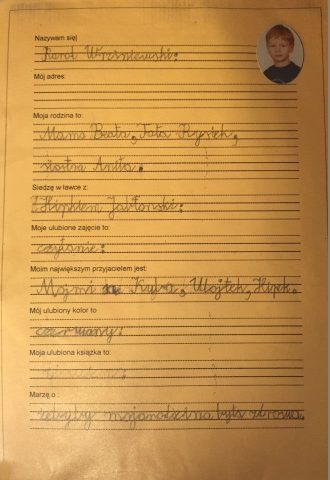 Nazywam się
Karol Wrześniewski.
Mój adres:
Moja rodzina to:
Mama Beata, Tata Rysiek,
siostra Anita.
Siedzę w ławce z:
Moje ulubione zajęcie to:
czytanie.
Moim największym przyjacielem jest:
Kuba, Wojtek, Hipek.
Mój ulubiony kolor to
czerwany.
Moja ulubiona książka to:
Marzę o :
żebyby moja rodzina była zdrowa.